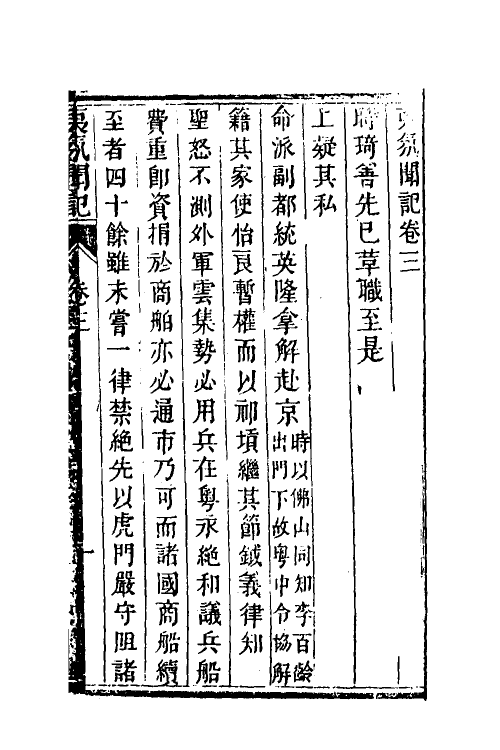 夷氛聞記卷三
時琦善先已革職至是
上疑其私
命派副都統英隆拿解赴京時以佛山同知李百齡出門下故粵中令協解
籍其家使怡良暫權而以祁頊繼其節鉞義律知
聖怒不測外軍雲集勢必用兵在粵永絕和議兵船
費重即資捐於商舶亦必通市乃可而諸國商船續
至者四十餘雖未嘗一律禁絕先以虎門嚴守阻諸
夷氛聞記
卷三
一